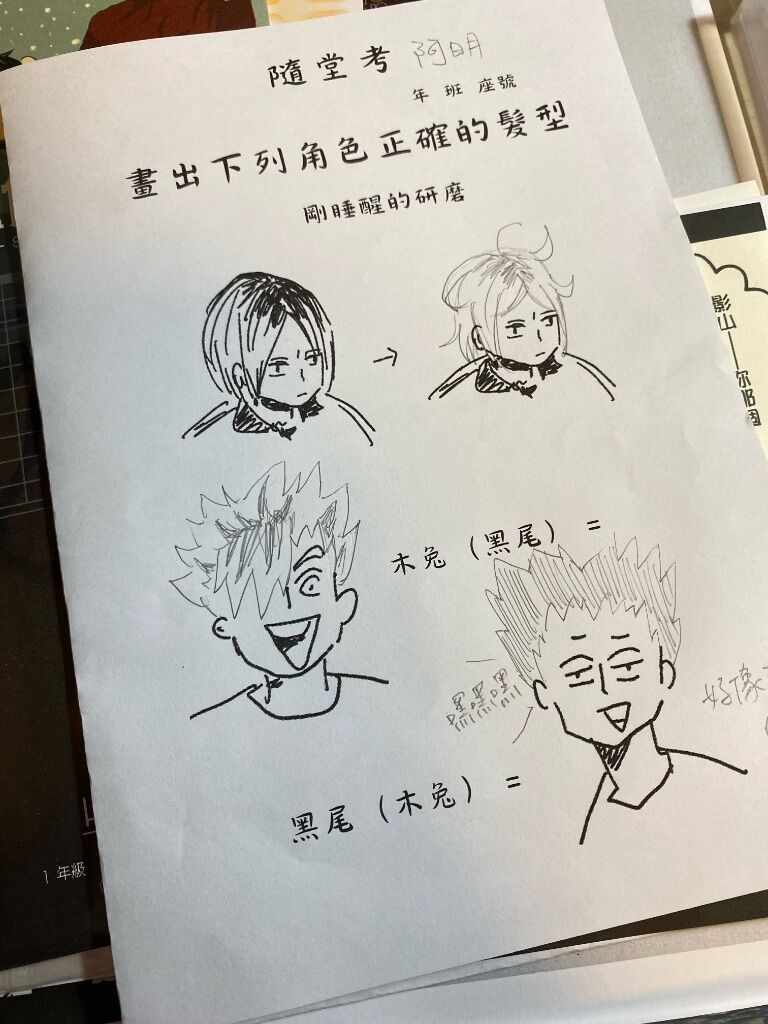 隨堂考 阿明
年 班 座號
畫出下列角色正確的髮型
剛睡醒的研磨
→
木兔（黑尾）=
嘿嘿嘿
好像
黑尾（木兔）=
影山——你那個
1 年級